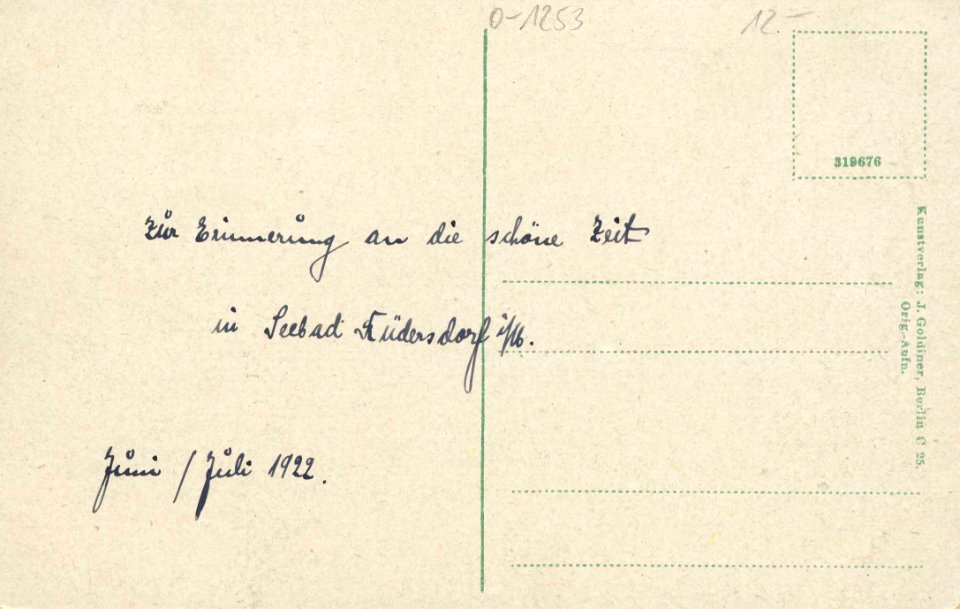 0-1253
12.-
319676
Zur Erinnerung an die schöne Zeit
in Seebad Rüdersdorf i/M.
Juni / Juli 1922.
Kunstverlag: J. Goldiner, Berlin C 25.
Orig.-Aufn.